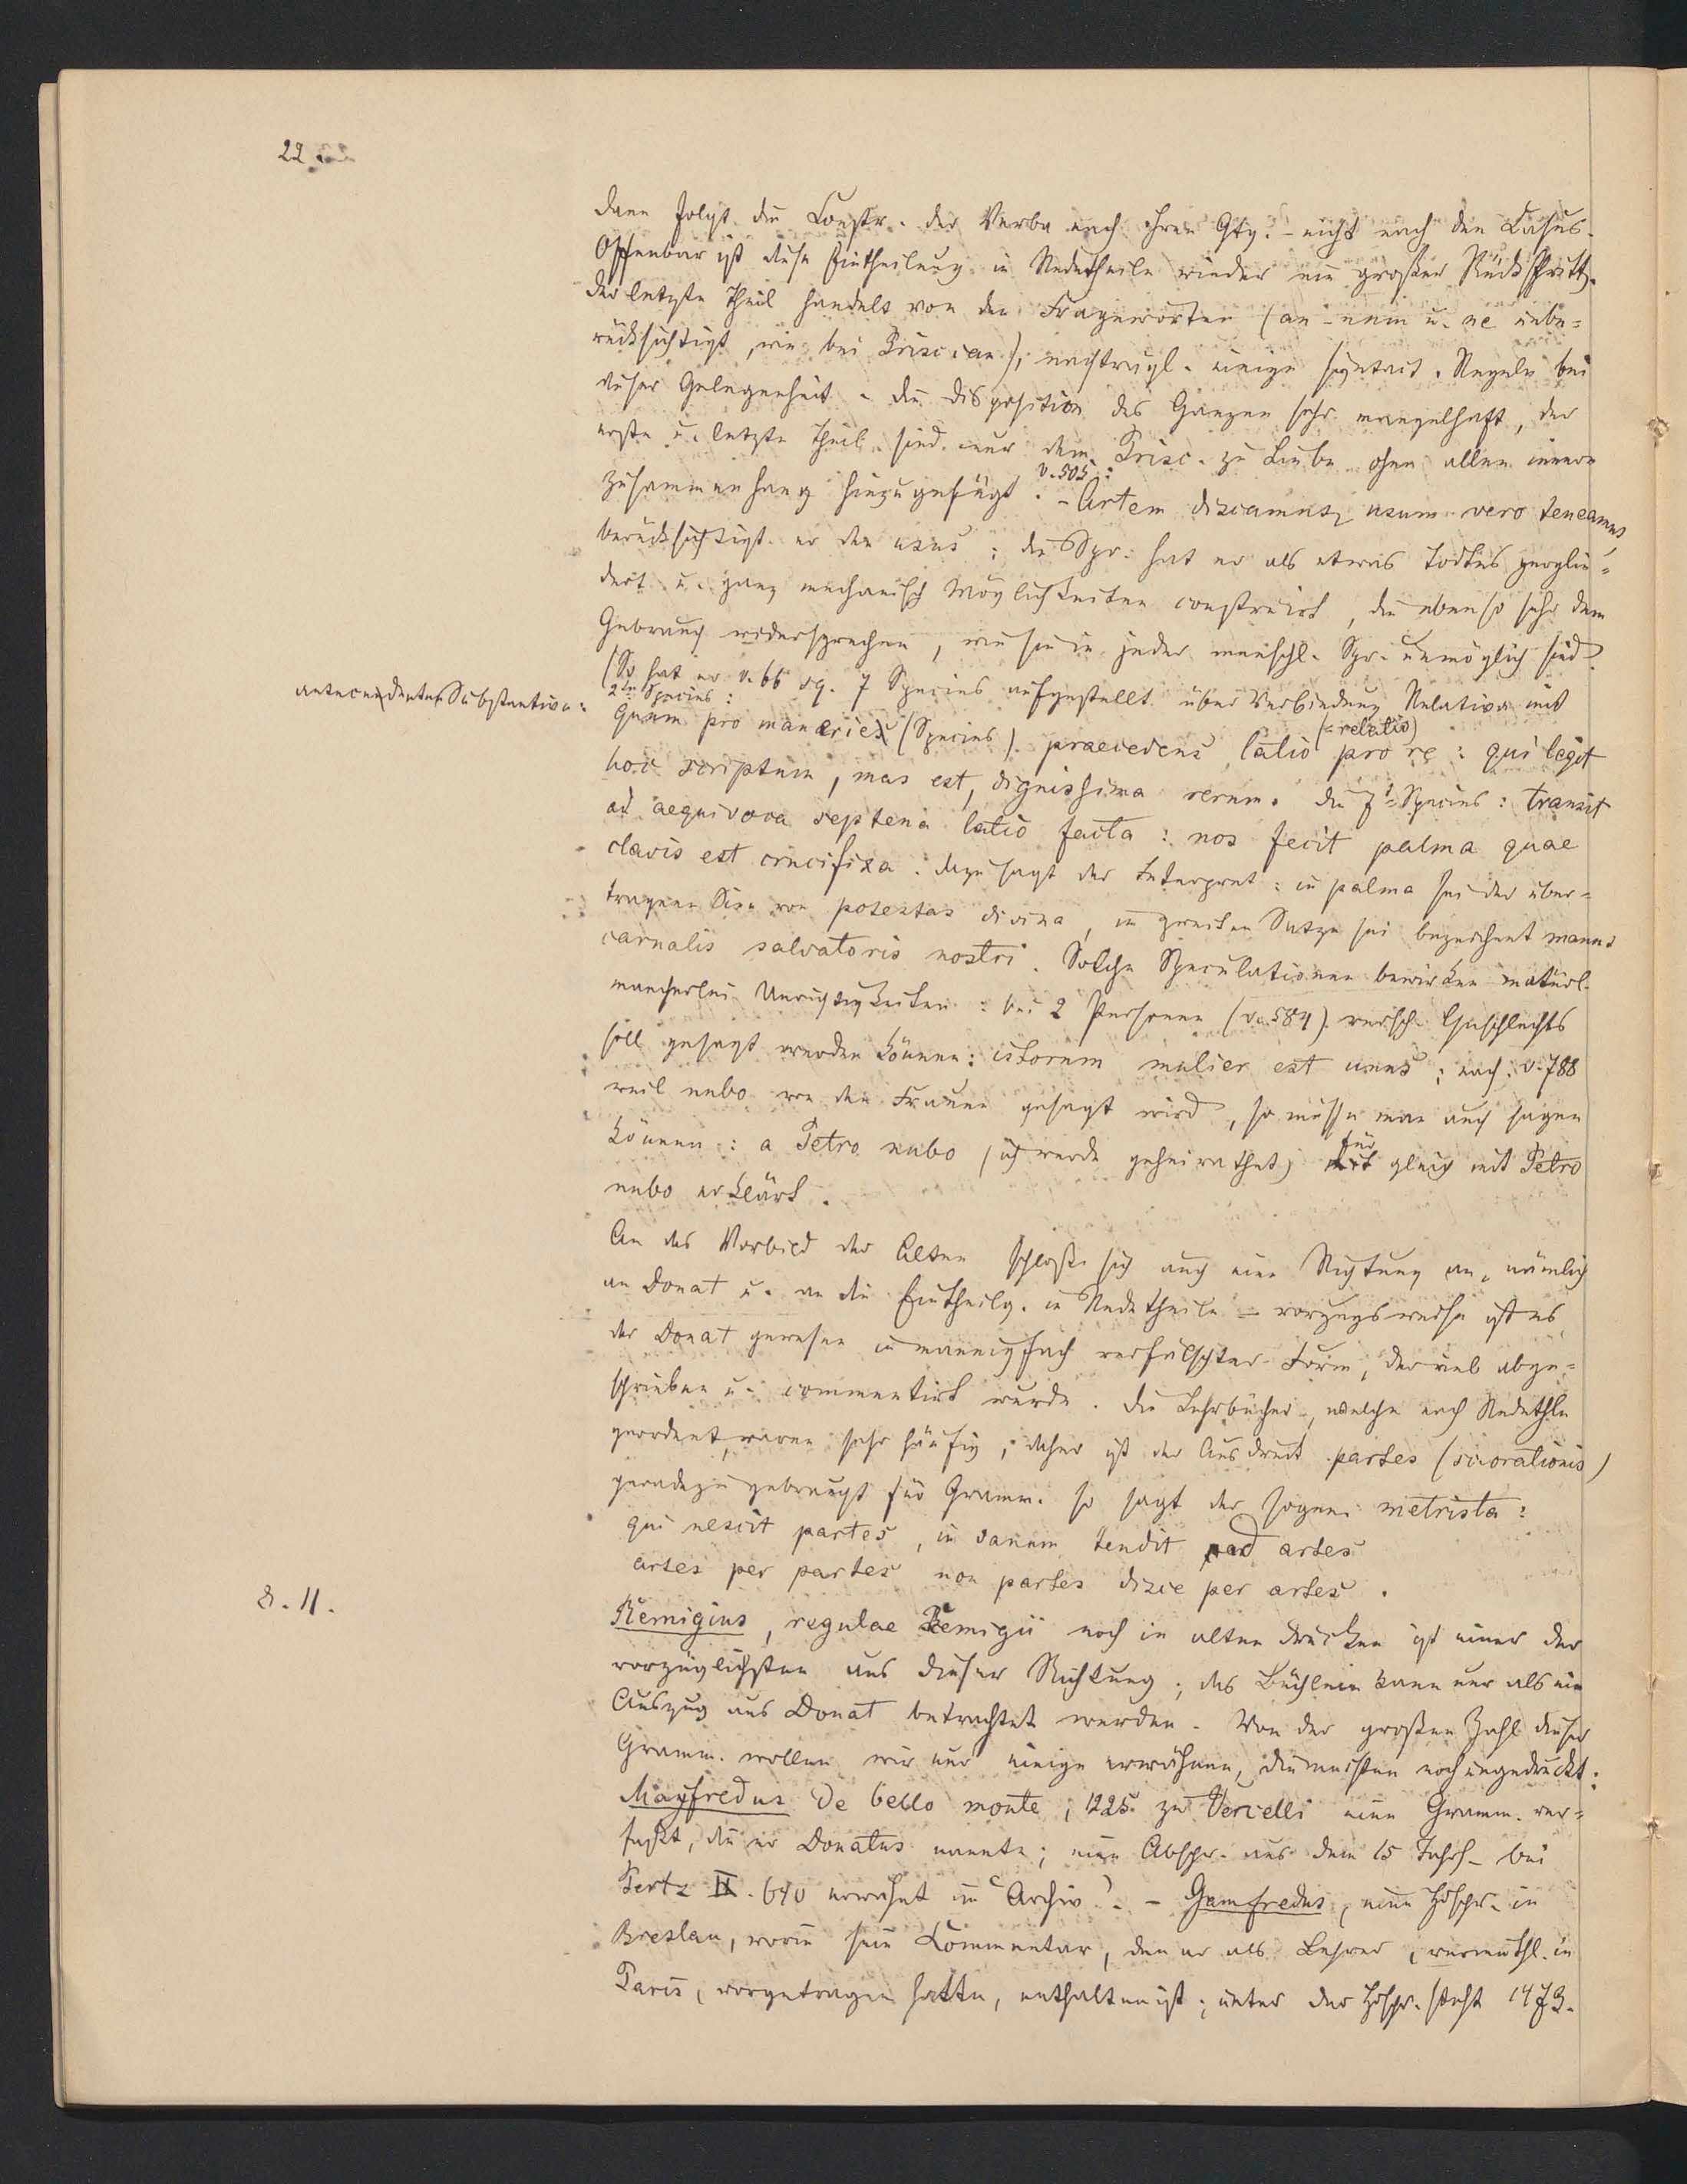 22
dann folgt die Constr. der Verba nach ihren Gtg. - nicht nach den Casus.
Offenbar ist diese Eintheilung in Redetheile wieder ein großer Rückschritt.
der letzte Theil handelt von den Fragewörtern (an - num u. ne unbe=
rücksichtigt, wie bei Priscian); nachträgl. einige syntact. Regeln bei
dieser Gelegenheit. die disposition des Ganzen sehr mangelhaft, der
erste u. letzte Theil sind nur dem Prisc. zu Liebe ohne allen innern
v. 505:
Zusammenhang hinzugefügt. - Artem discamus, usum vero teneamus,
berücksichtigt er den usus; die Spr. hat er als etwas todtes zerglie=
dert u. ganz mechanisch Möglichkeiten construirt, die ebenso sehr dem
Gebrauch widersprechen, wie sie in jeder menschl. Spr. unmöglich sind.
(So hat er v. 66 sq. 7 Species aufgestellt über Verbindung Relativa mit
antecendentes Substantiva:
2te Species:
Quam pro maneries (Species) praecedens latio (=relatio) pro re: qui legit
hoc scriptum, mas est, dignissima rerum. die 7te Species: transit
ad aequivoca septena latio facta: nos fecit palma quae
clavis est crucifixa. dazu sagt der Interpret: in palma sei der über=
tragene Sinn von potestas divina, im zweiten Satze sei bezeichnet manus
carnalis salvatoris nostri. Solche Speculationen bewirken natürl.
mancherlei Unrichtigkeiten: bei 2 Personen (v. 584) versch. Geschlechts
soll gesagt werden können: istorum mulier est unus; nach v. 788
weil nubo von den Frauen gesagt wird, so müsse man auch sagen
können: a Petro nubo (ich werde geheirathet) für gleich mit Petro
nubo erklärt.
An das Vorbild der Alten schloß sich auch eine Richtung an, nämlich
an Donat u. an die Eintheilg. in Redetheile - vorzugsweise ist es
der Donat gewesen in mannigfach verfälschter Form, der viel abge=
schrieben u. commentirt wurde. Die Lehrbücher, welche nach Redethle
geordnet, waren sehr häufig, daher ist der Ausdruck partes (sc. orationis)
geradezu gebraucht für Gramm. so sagt der sogen. metrista:
qui nescit partes, in vanum tendit ad artes
artes per partes non partes disce per artes.
8. 11.
Remigius, regulae Remigii noch in alten Drucken ist einer der
vorzüglichsten aus dieser Richtung; das Büchlein kann nur als ein
Auszug aus Donat betrachtet werden. Von der großen Zahl dieser
Gramm. wollen wir nur einige erwähnen, die meisten noch ungedruckt:
Mayfredus de bello monte, 1225 zu Vercelli eine Gramm. ver=
faßt, die er Donatus nannte; eine Abschr. aus dem 15 Jahrh. bei
Pertz IX. 640 erwähnt im "Archiv". - Gamfredus, eine Hdschr. in
Breslau, worin sein Commentar, den er als Lehrer, vermuthl. in
Paris, vorgetragen hatte, enthalten ist; unter der Hdschr. steht 1473.